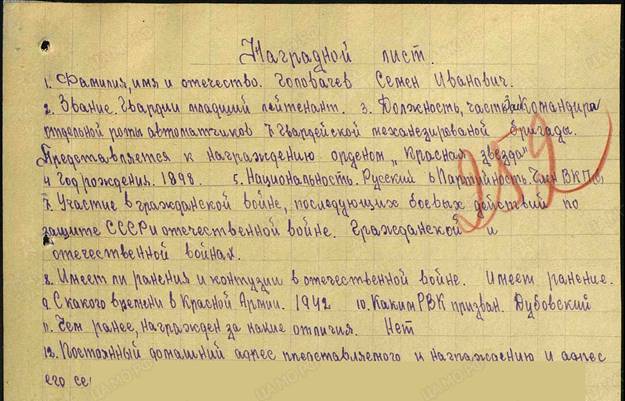 Наградной лист.
1. Фамилия, имя и отечество. Головачев Семен Иванович.
2. Звание. Гвардии младший лейтенант. 3. Должность, часть Зам Командира
отдельной роты автоматчиков 7 Гвардейской механезированой бригады.
Представляется к награждению орденом „Красная звезда"
4 Год рождения. 1898. 5. Национальность. Русский 6 Партийность. Член ВКП(б)
7. Участие в гражданской войне, последующих боевых действий по
защите СССР и отечественной войне. Гражданской и
отечественной войнах.
8. Имеет ли ранения и контузии в отечественной войне. Имеет ранение.
9. С какого времени в Красной Армии. 1942 10. Каким РВК призван. Дубовский
11. Чем ранее, награжден за какие отличия. Нет
12. Постоянный домашний адрес представляемого к награждению и адрес
его се
252